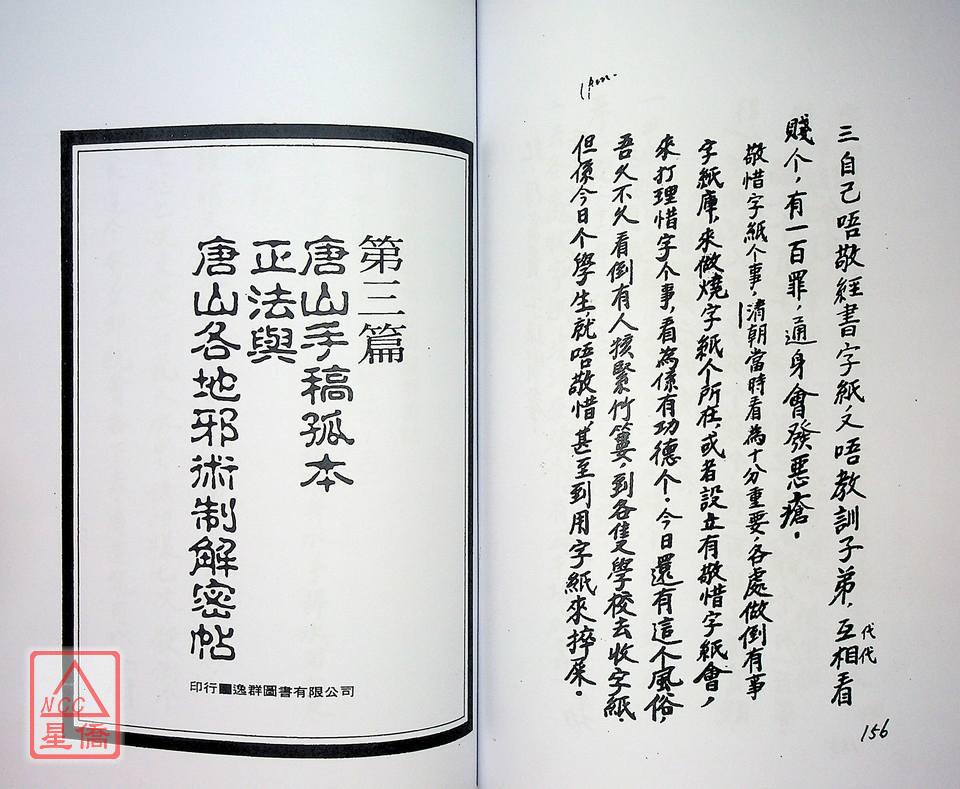 三自己唔敬經書字紙又唔教訓子弟，互相看
代代
賤个，有一百罪，通身會發惡瘡。
敬惜字紙个事，清朝當時看為十分重要，各處做倒有事
字紙庫，來做燒字紙个所在，或者設立有敬惜字紙會，
來打理惜字个事，看為係有功德个。今日還有這个風俗，
吾久不久看倒有人揹緊竹簍，到各學校去收字紙，
但係今日个學生，就唔敬惜，甚至到用字紙來擦屎。
156
第三篇
唐山手稿孤本
正法與
唐山各地邪術制解密帖
印行■逸群圖書有限公司
NCC
星僑